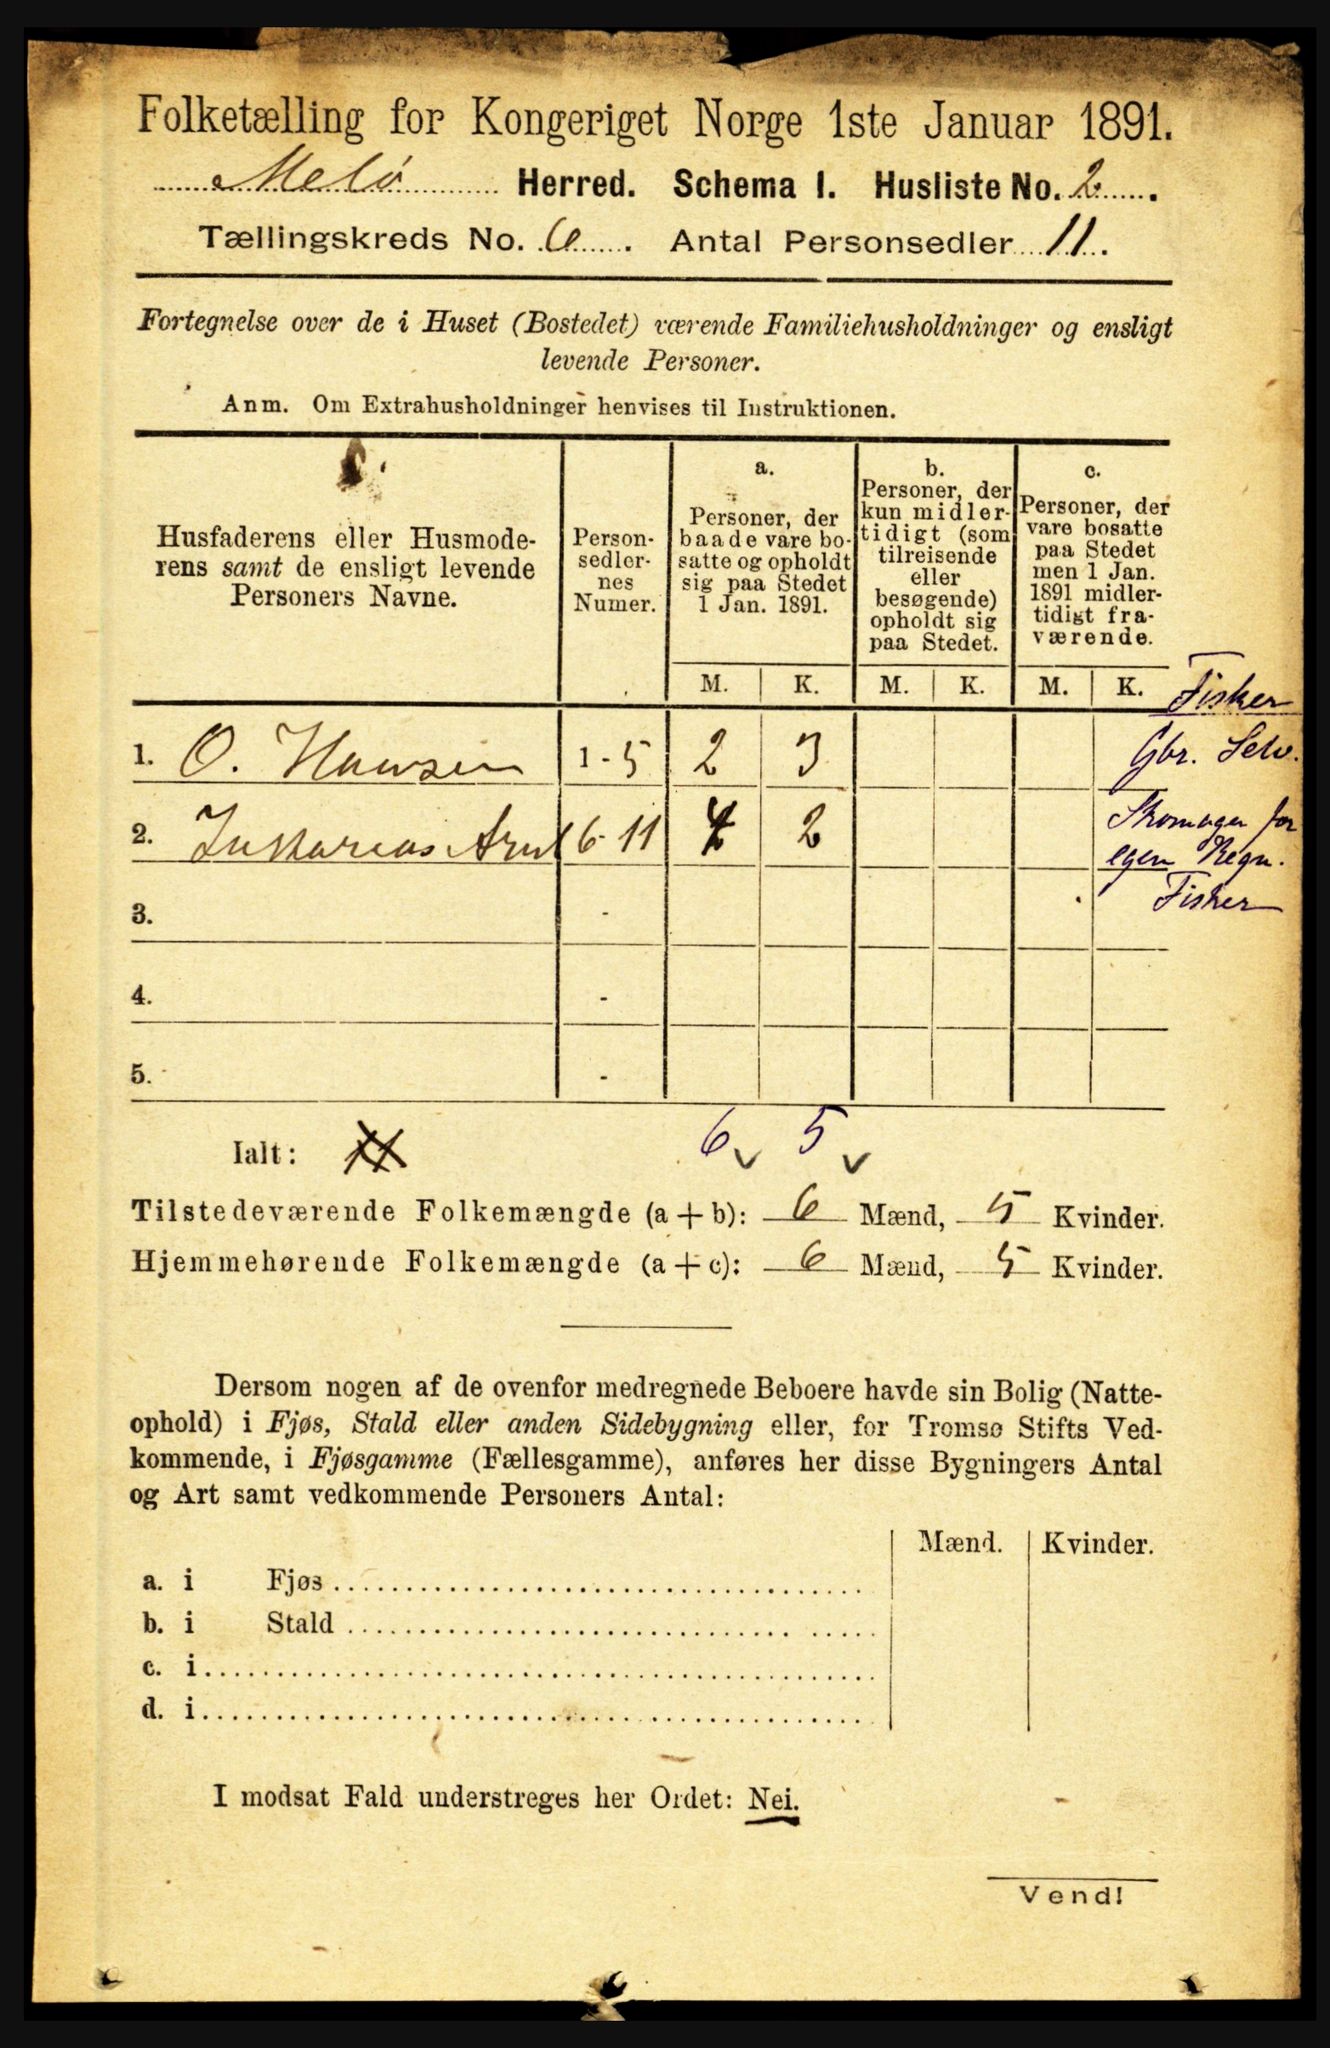 Folketælling for Kongeriget Norge 1ste Januar 1891.
Melø Herred. Schema I. Husliste No. 2.
Tællingskreds No. 6. Antal Personsedler 11.
Fortegnelse over de i Huset (Bostedet) værende Familiehusholdninger og ensligt
levende Personer.
Anm. Om Extrahusholdninger henvises til Instruktionen.
Husfaderens eller Husmode-
rens samt de ensligt levende
Personers Navne.
Person-
sedler-
nes
Numer.
a.
Personer, der
baade vare bo-
satte og opholdt
sig paa Stedet
1 Jan. 1891.
b.
Personer, der
kun midler-
tidigt (som
tilreisende
eller
besøgende)
opholdt sig
paa Stedet.
c.
Personer, der
vare bosatte
paa Stedet
men 1 Jan.
1891 midler-
tidigt fra-
værende.
M. K. M. K. M. K.
Fisker
1. O. Hansen 1-5 2 3
Gbr. Selv.
2. 6-11 4 2
Skomager for
egen Regn.
Fisker
3. -
4. -
5. -
Ialt: 11 6 5
Tilstedeværende Folkemængde (a + b): 6 Mænd, 5 Kvinder.
Hjemmehørende Folkemængde (a + c): 6 Mænd, 5 Kvinder.
Dersom nogen af de ovenfor medregnede Beboere havde sin Bolig (Natte-
ophold) i Fjøs, Stald eller anden Sidebygning eller, for Tromsø Stifts Ved-
kommende, i Fjøsgamme (Fællesgamme), anføres her disse Bygningers Antal
og Art samt vedkommende Personers Antal:
Mænd. Kvinder.
a. i Fjøs
b. i Stald
c. i
d. i
I modsat Fald understreges her Ordet: Nei.
Vend!